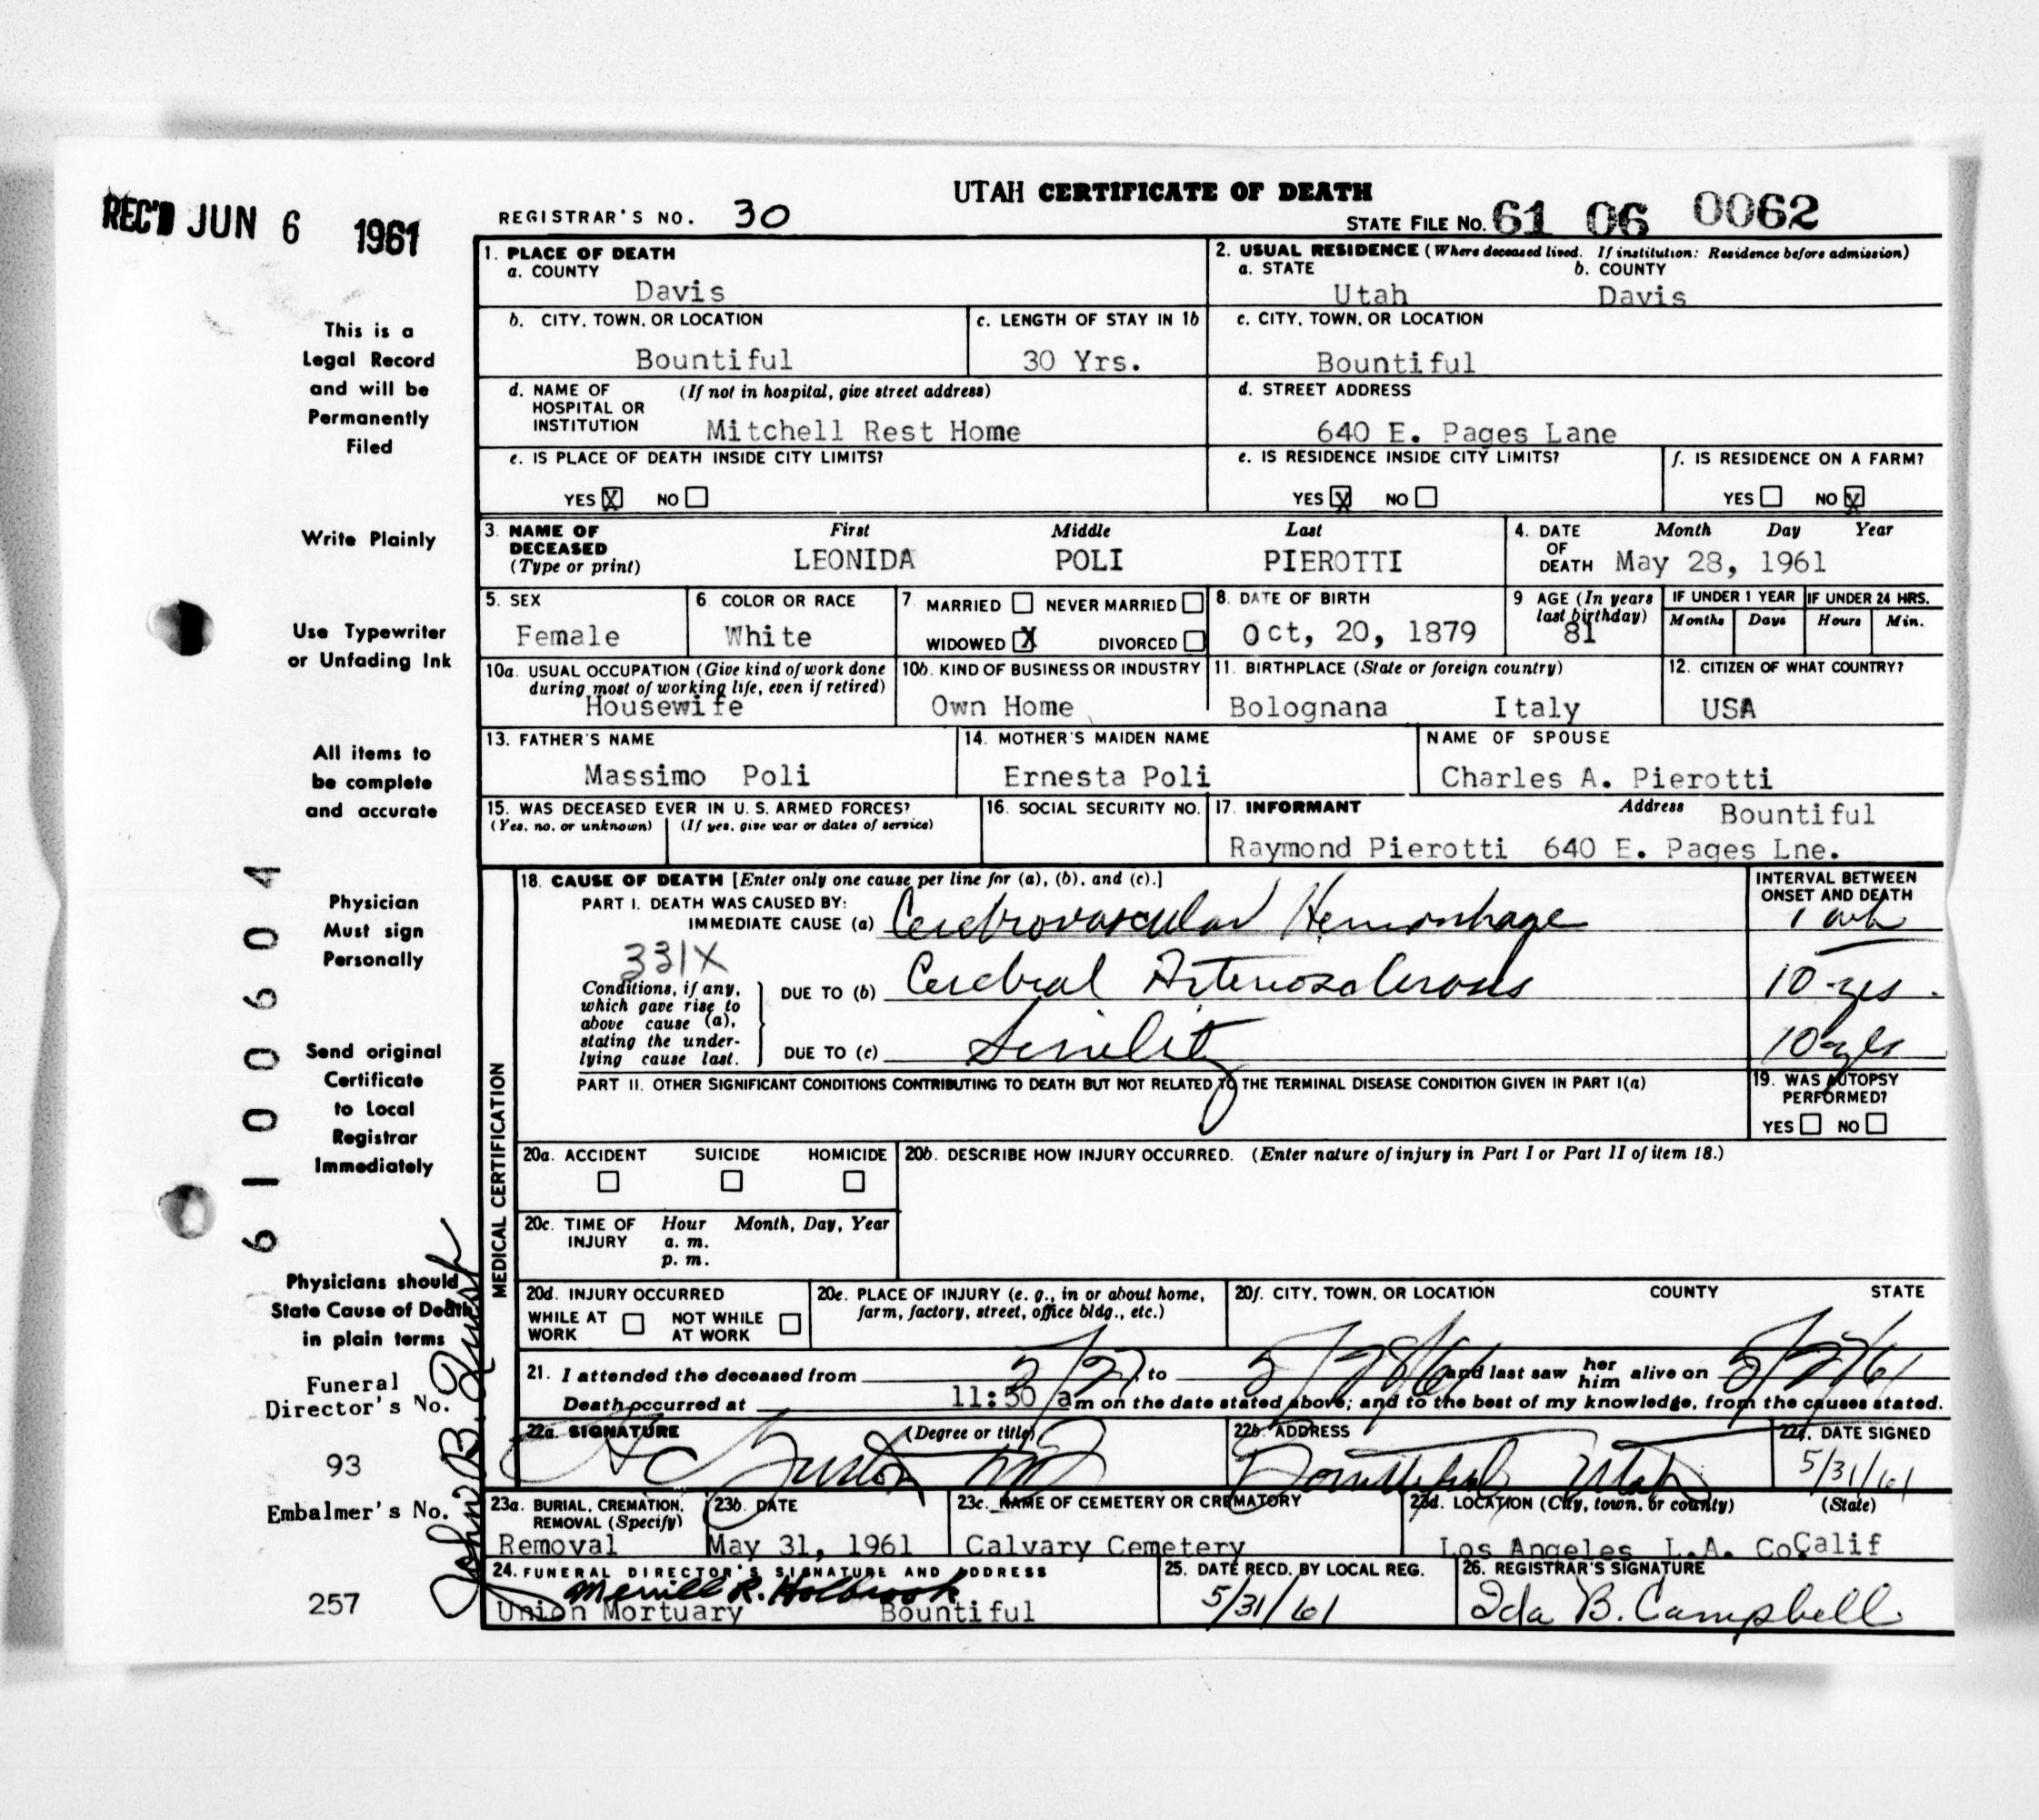 UTAH CERTIFICATE OF DEATH
REC'D JUN 6 1961
REGISTRAR'S NO. 30
STATE FILE NO. 61 06 0062
1. PLACE OF DEATH
a. COUNTY
Davis
2. USUAL RESIDENCE (Where deceased lived. If institution: Residence before admission)
a. STATE b. COUNTY
Utah Davis
b. CITY, TOWN, OR LOCATION
Bountiful
c. LENGTH OF STAY IN 1b
30 Yrs.
c. CITY, TOWN, OR LOCATION
Bountiful
d. NAME OF (If not in hospital, give street address)
HOSPITAL OR
INSTITUTION Mitchell Rest Home
d. STREET ADDRESS
640 E. Pages Lane
e. IS PLACE OF DEATH INSIDE CITY LIMITS?
YES X NO
e. IS RESIDENCE INSIDE CITY LIMITS?
YES X NO
f. IS RESIDENCE ON A FARM?
YES NO X
3. NAME OF First Middle Last
DECEASED
(Type or print) LEONIDA POLI PIEROTTI
4. DATE Month Day Year
OF
DEATH May 28, 1961
5. SEX
Female
6. COLOR OR RACE
White
7. MARRIED NEVER MARRIED
WIDOWED X DIVORCED
8. DATE OF BIRTH
Oct, 20, 1879
9 AGE (In years
last birthday)
81
IF UNDER 1 YEAR
Months Days
IF UNDER 24 HRS.
Hours Min.
10a. USUAL OCCUPATION (Give kind of work done
during most of working life, even if retired)
Housewife
10b. KIND OF BUSINESS OR INDUSTRY
Own Home
11. BIRTHPLACE (State or foreign country)
Bolognana Italy
12. CITIZEN OF WHAT COUNTRY?
USA
13. FATHER'S NAME
Massimo Poli
14. MOTHER'S MAIDEN NAME
Ernesta Poli
NAME OF SPOUSE
Charles A. Pierotti
15. WAS DECEASED EVER IN U. S. ARMED FORCES?
(Yes, no, or unknown) (If yes, give war or dates of service)
16. SOCIAL SECURITY NO.
17. INFORMANT Address Bountiful
Raymond Pierotti 640 E. Pages Lne.
MEDICAL CERTIFICATION
18. CAUSE OF DEATH [Enter only one cause per line for (a), (b), and (c).]
INTERVAL BETWEEN
ONSET AND DEATH
PART I. DEATH WAS CAUSED BY:
IMMEDIATE CAUSE (a) Cerebrovascular Hemorrhage 1 wk
331X
Conditions, if any,
which gave rise to
above cause (a),
stating the under-
lying cause last.
DUE TO (b) Cerebral Arteriosclerosis 10 yrs.
DUE TO (c) Senility 10 yrs
PART II. OTHER SIGNIFICANT CONDITIONS CONTRIBUTING TO DEATH BUT NOT RELATED TO THE TERMINAL DISEASE CONDITION GIVEN IN PART I(a)
19. WAS AUTOPSY
PERFORMED?
YES NO
20a. ACCIDENT SUICIDE HOMICIDE
20b. DESCRIBE HOW INJURY OCCURRED. (Enter nature of injury in Part I or Part II of item 18.)
20c. TIME OF Hour Month, Day, Year
INJURY a. m.
p. m.
20d. INJURY OCCURRED
WHILE AT NOT WHILE
WORK AT WORK
20e. PLACE OF INJURY (e. g., in or about home,
farm, factory, street, office bldg., etc.)
20f. CITY, TOWN, OR LOCATION COUNTY STATE
21. I attended the deceased from to 5/28/61 and last saw her him alive on
Death occurred at 11:50 a m on the date stated above; and to the best of my knowledge, from the causes stated.
22a. SIGNATURE (Degree or title)
MD
22b. ADDRESS
Bountiful Utah
22c. DATE SIGNED
5/31/61
23a. BURIAL, CREMATION,
REMOVAL (Specify)
Removal
23b. DATE
May 31, 1961
23c. NAME OF CEMETERY OR CREMATORY
Calvary Cemetery
23d. LOCATION (City, town, or county) (State)
Los Angeles L.A. Co Calif
24. FUNERAL DIRECTOR'S SIGNATURE AND ADDRESS
Merrill R. Holbrook
Union Mortuary Bountiful
25. DATE RECD. BY LOCAL REG.
5/31/61
26. REGISTRAR'S SIGNATURE
Ida B. Campbell
This is a
Legal Record
and will be
Permanently
Filed
Write Plainly
Use Typewriter
or Unfading Ink
All items to
be complete
and accurate
Physician
Must sign
Personally
Send original
Certificate
to Local
Registrar
Immediately
Physicians should
State Cause of Death
in plain terms
Funeral
Director's No.
93
Embalmer's No.
257
6100604
John B.